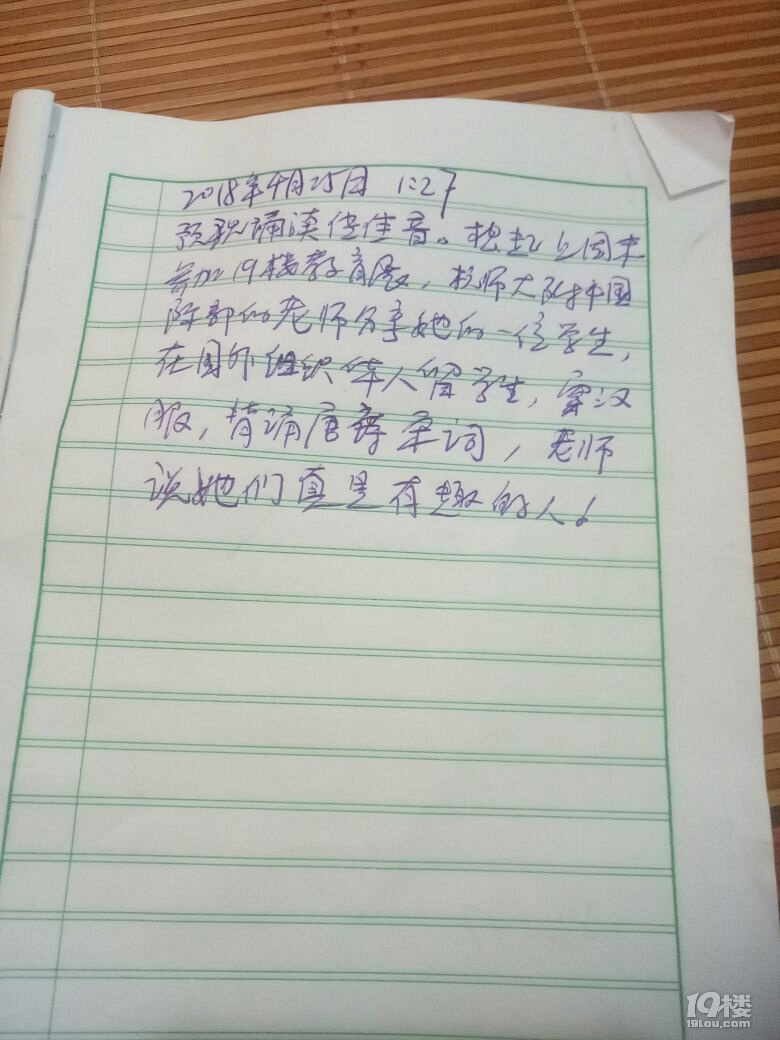 2018年4月25日 1:27
预祝诵读传佳音。想起上周末
参加19楼教育展，杭师大附中国
际部的老师分享她的一位学生，
在国外组织华人留学生，穿汉
服，背诵唐诗宋词，老师
说她们真是有趣的人！
19楼
19lou.com